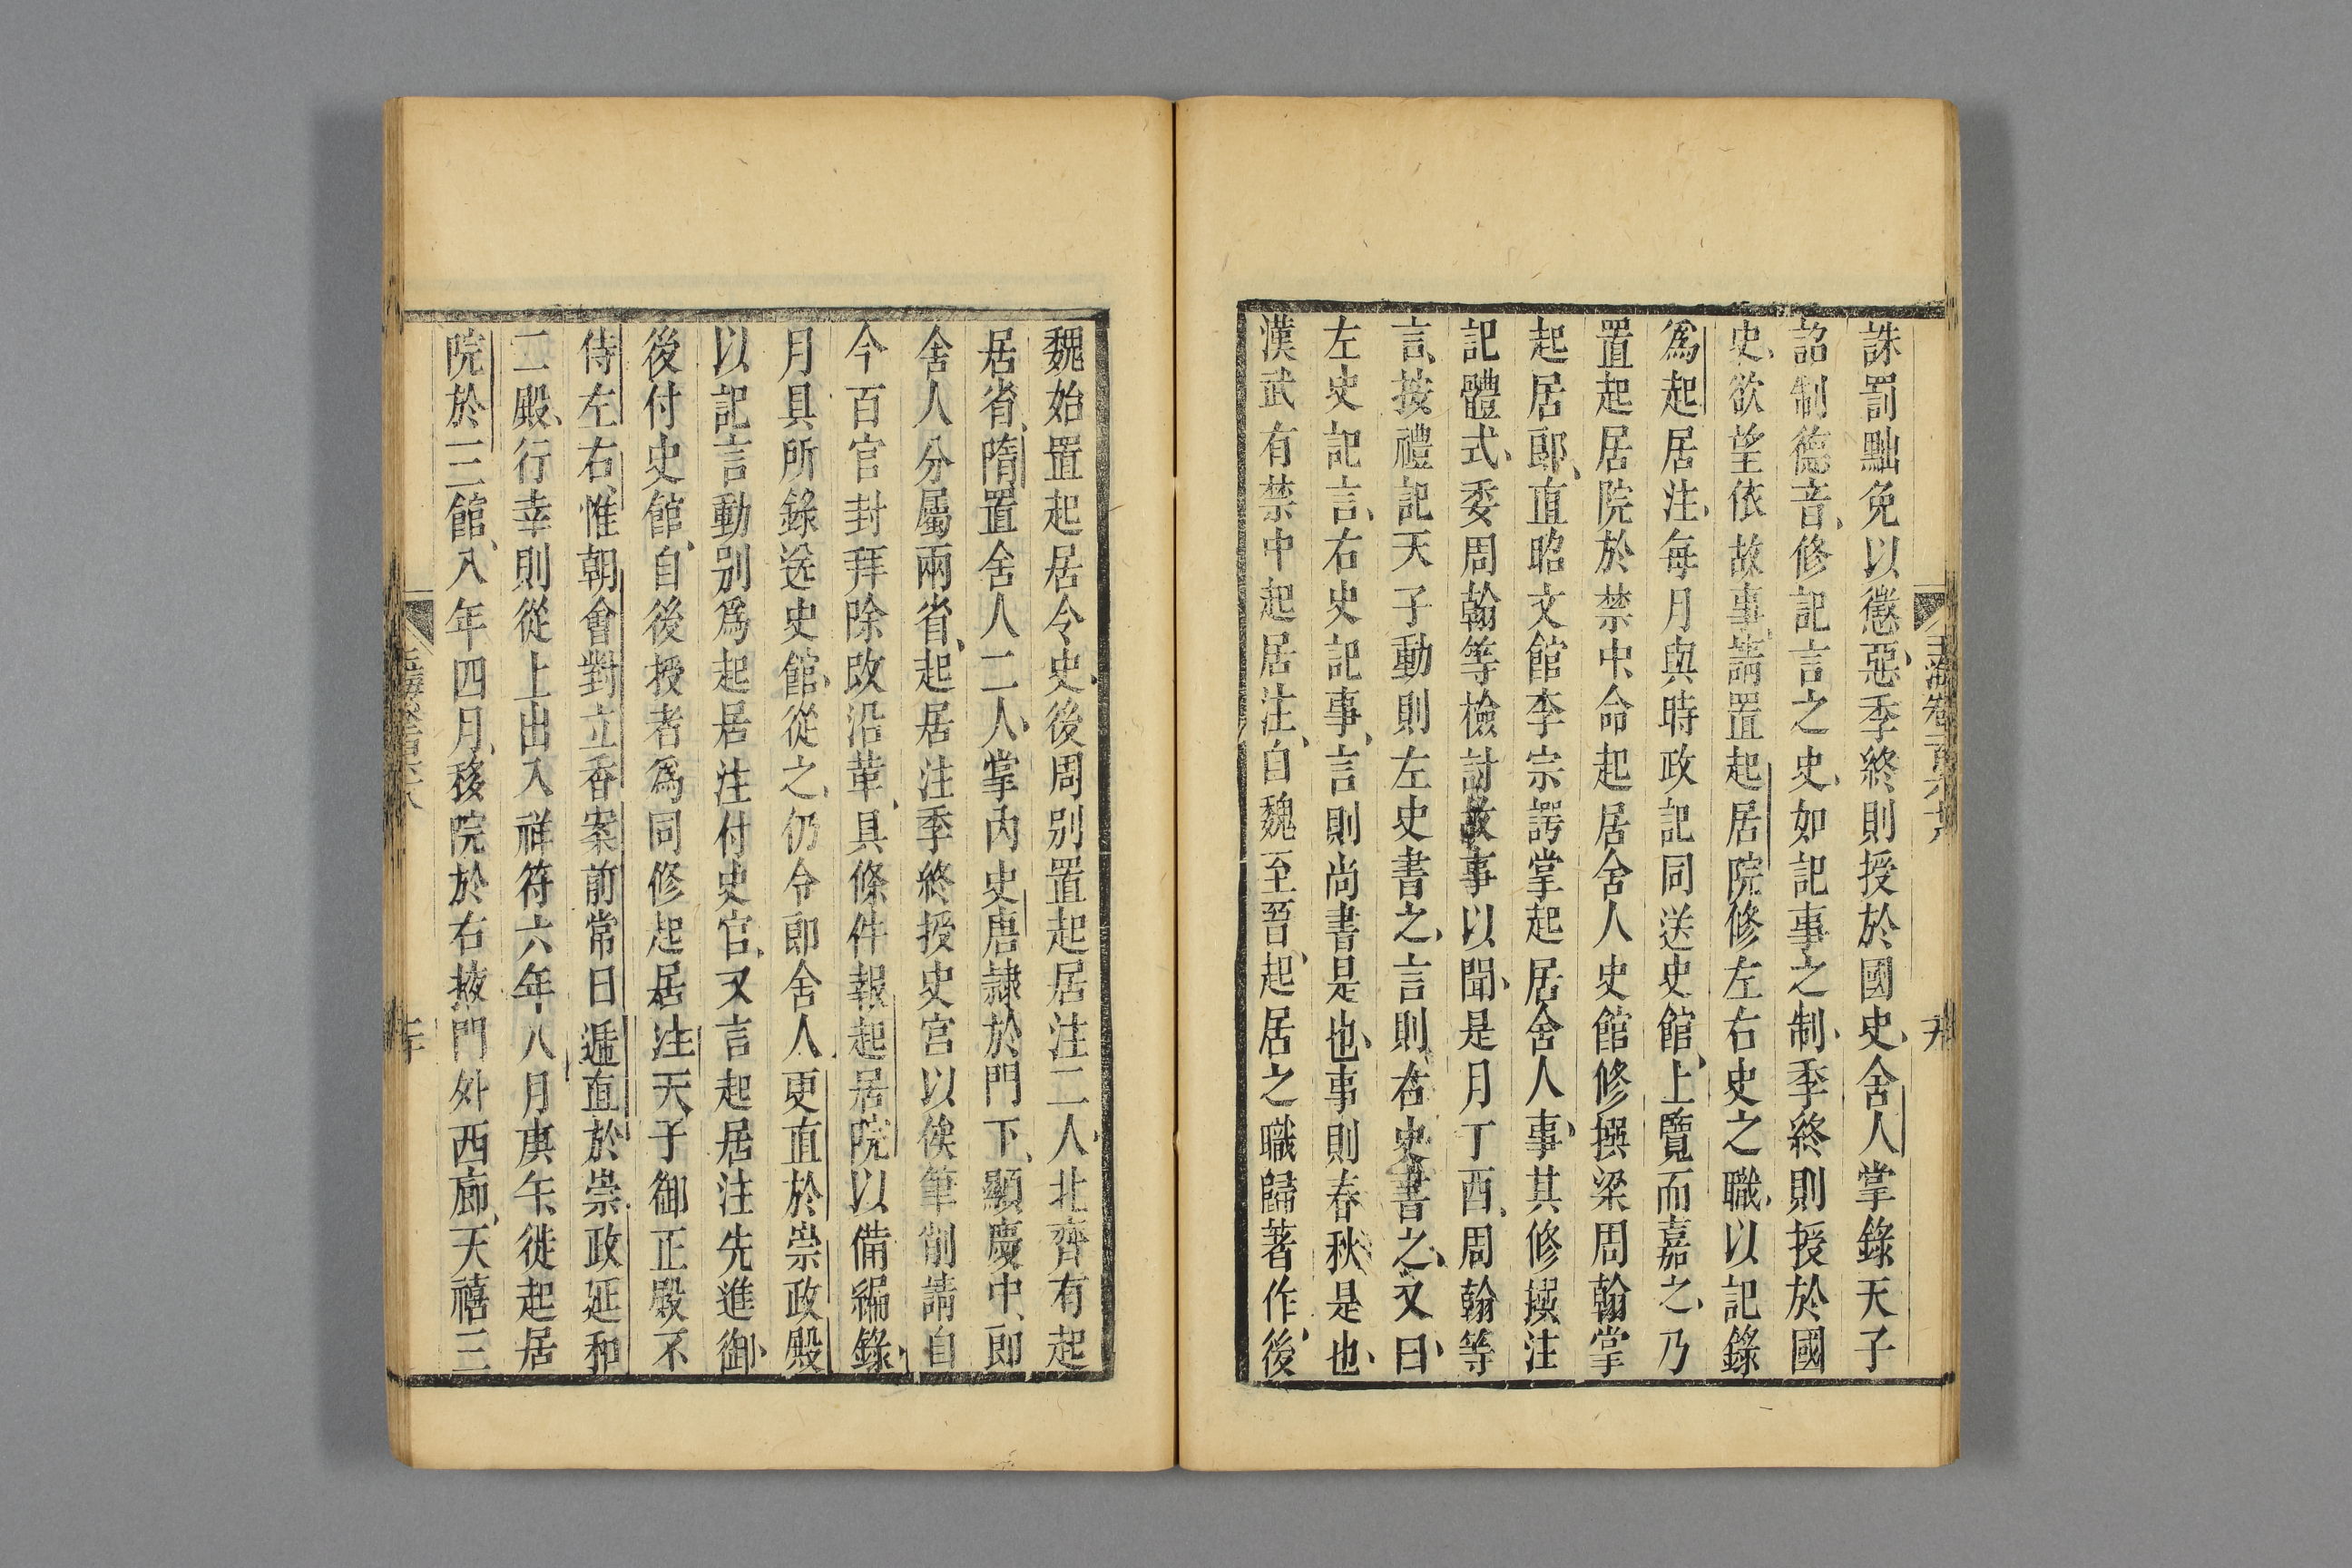 誅罰黜免以懲惡季終則授於國史舍人掌錄天子
詔制德音修記言之史如記事之制季終則授於國
史欲望依故事請置起居院修左右史之職以記錄
爲起居注每月與時政記同送史館上覽而嘉之乃
置起居院於禁中命起居舍人史館修撰梁周翰掌
起居郎直昭文館李宗諤掌起居舍人事其修撰注
記體式委周翰等檢討故事以聞是月丁酉周翰等
言按禮記天子動則左史書之言則右史書之又曰
左史記言右史記事言則尚書是也事則春秋是也
漢武有禁中起居注自魏至晉起居之職歸著作後
魏始置起居令史後周別置起居注二人北齊有起
居省隋置舍人二人掌內史唐隸於門下顯慶中即
舍人分屬兩省起居注季終授史官以俟筆削請自
今百官封拜除改沿革具條件報起居院以備編錄
月具所錄送史館從之仍令郎舍人更直於崇政殿
以記言動別爲起居注付史官又言起居注先進御
後付史館自後授者爲同修起居注天子御正殿不
侍左右惟朝會對立香案前常日遞直於崇政延和
二殿行幸則從上出入祥符六年八月庚午徙起居
院於三館入年四月移院於右掖門外西廊天禧三